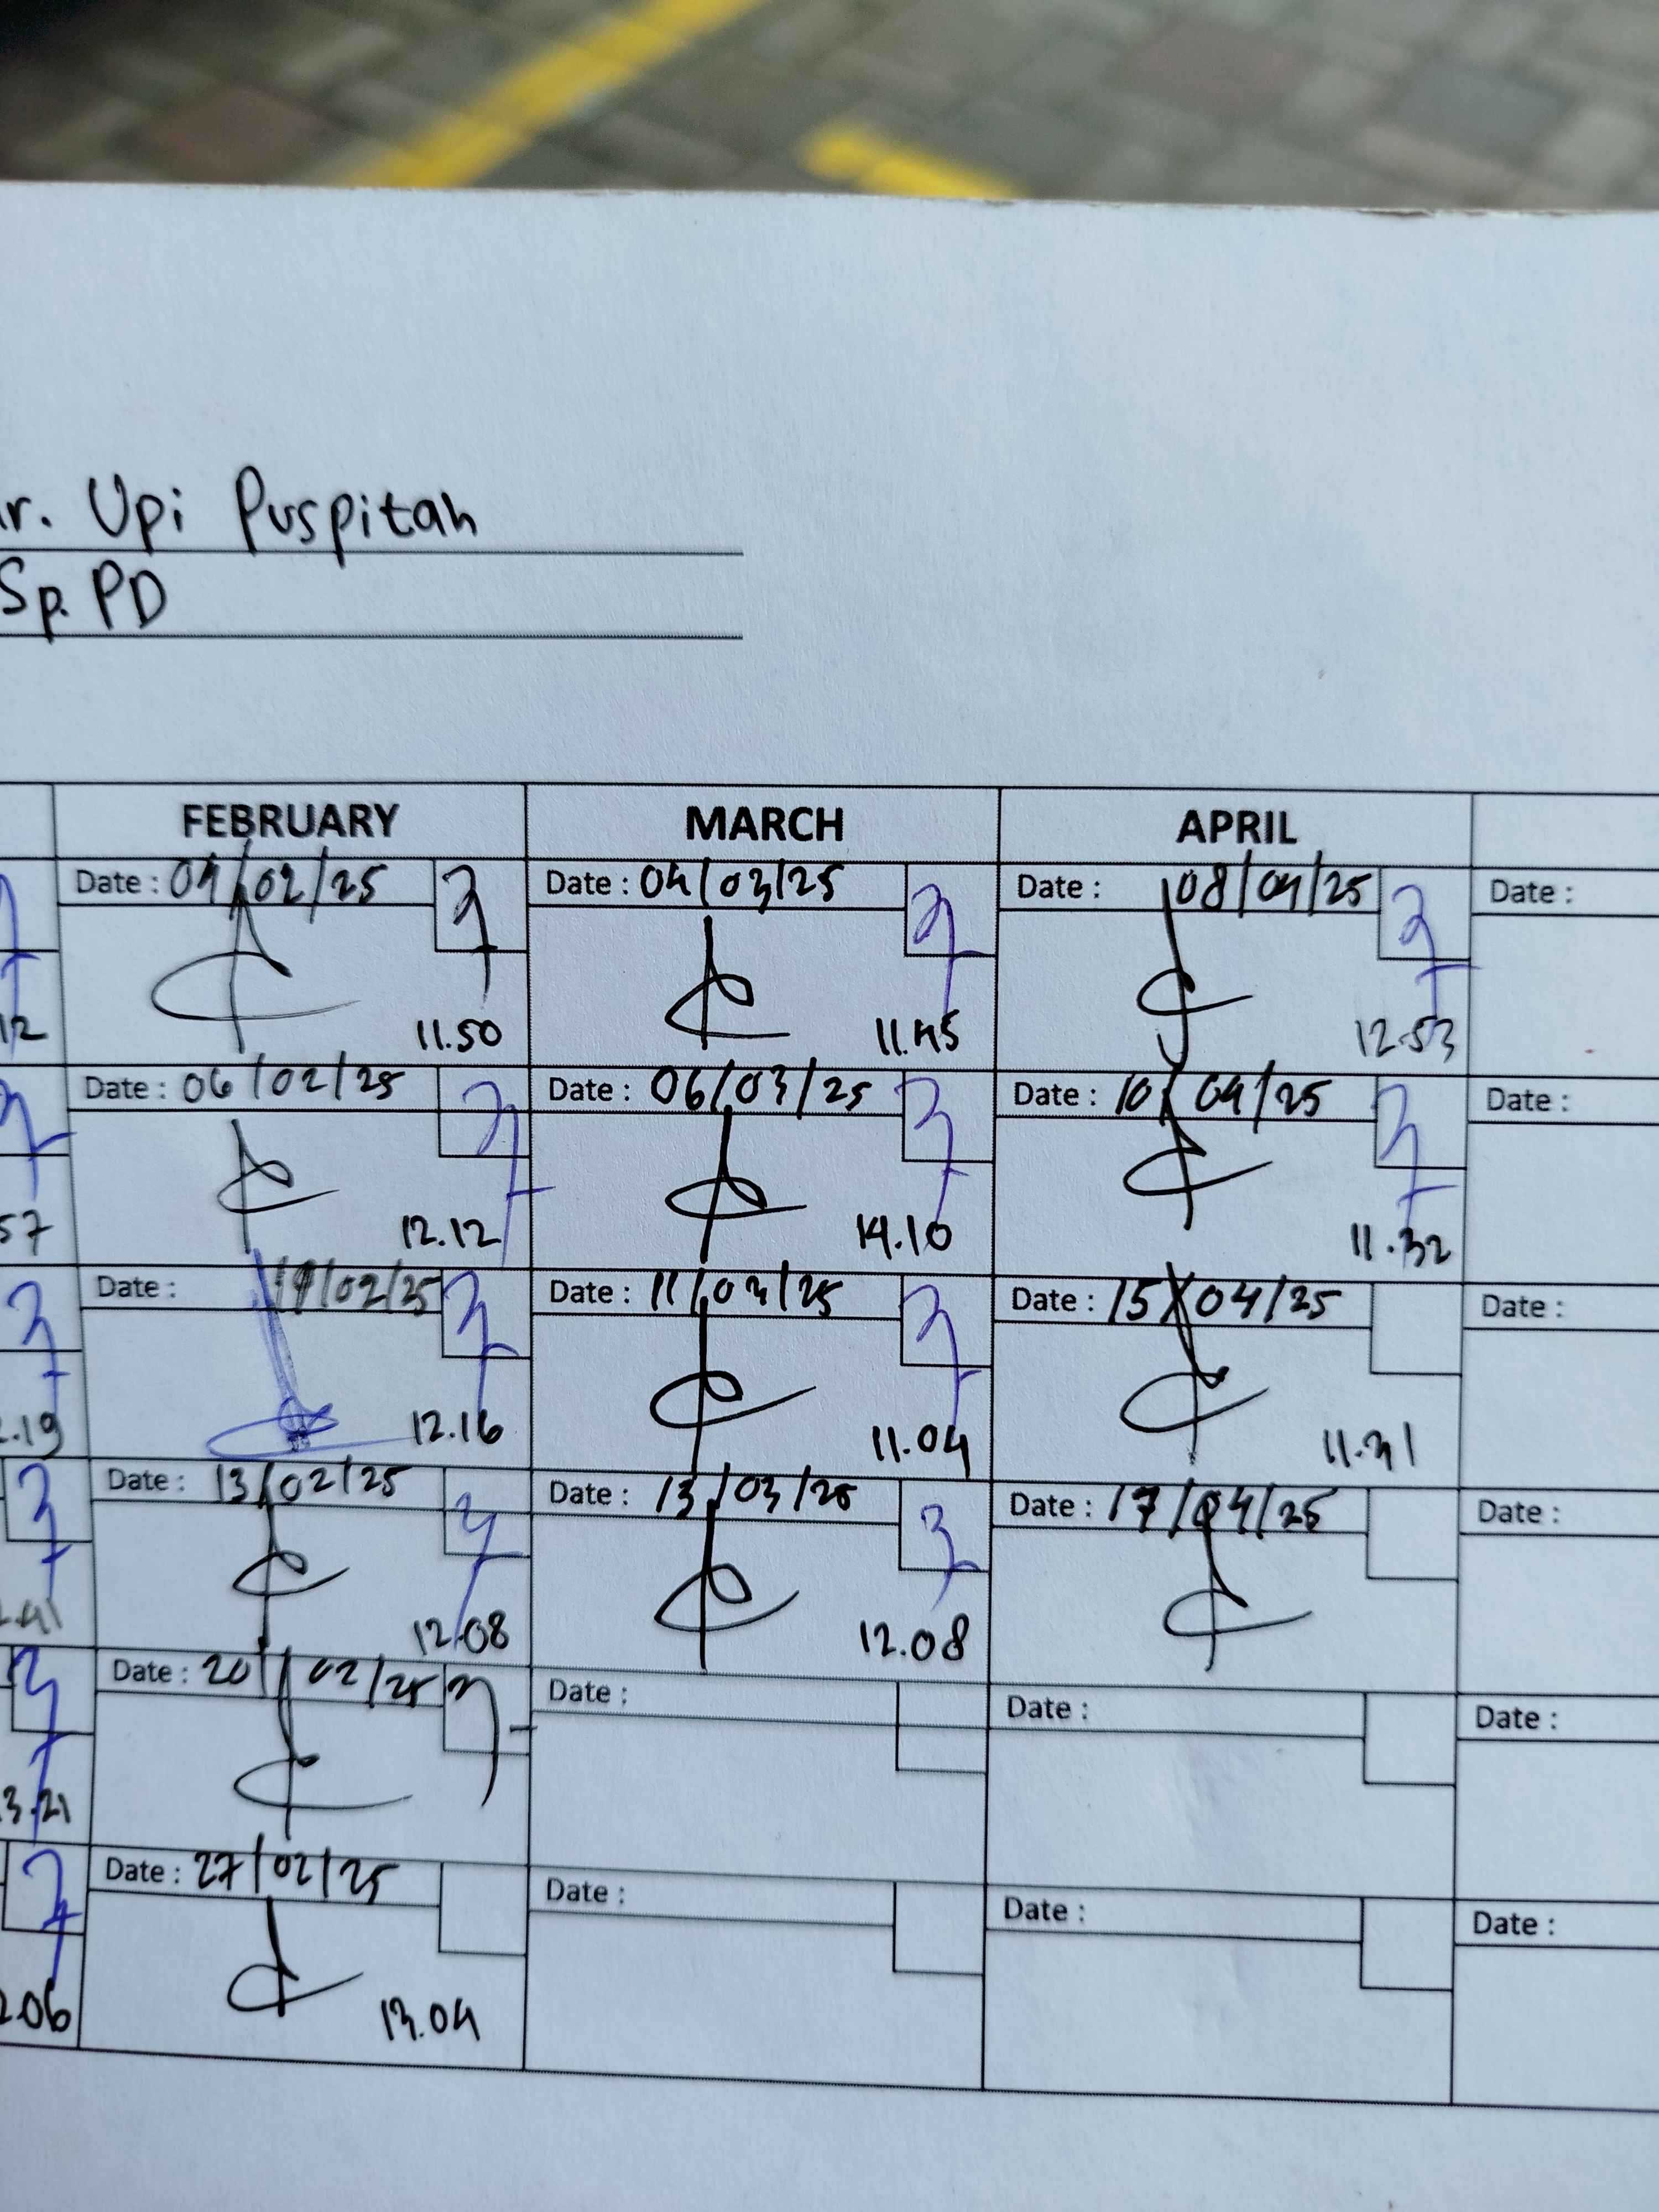 r. Upi Puspitah
Sp. PD
FEBRUARY MARCH APRIL
Date : 04/02/25 Date : 04/03/25 Date : 08/04/25 Date :
12 11.50 11.45 12.53
Date : 06/02/25 Date : 06/03/25 Date : 10/04/25 Date :
57 12.12 14.10 11.32
Date : /02/25 Date : 11/03/25 Date : 15/04/25 Date :
.19 12.16 11.04 11.31
Date : 13/02/25 Date : 13/03/25 Date : 17/04/25 Date :
.41 12.08 12.08
Date : 20/02/25 Date : Date : Date :
3.21
Date : 27/02/25 Date : Date : Date :
2.06 13.04